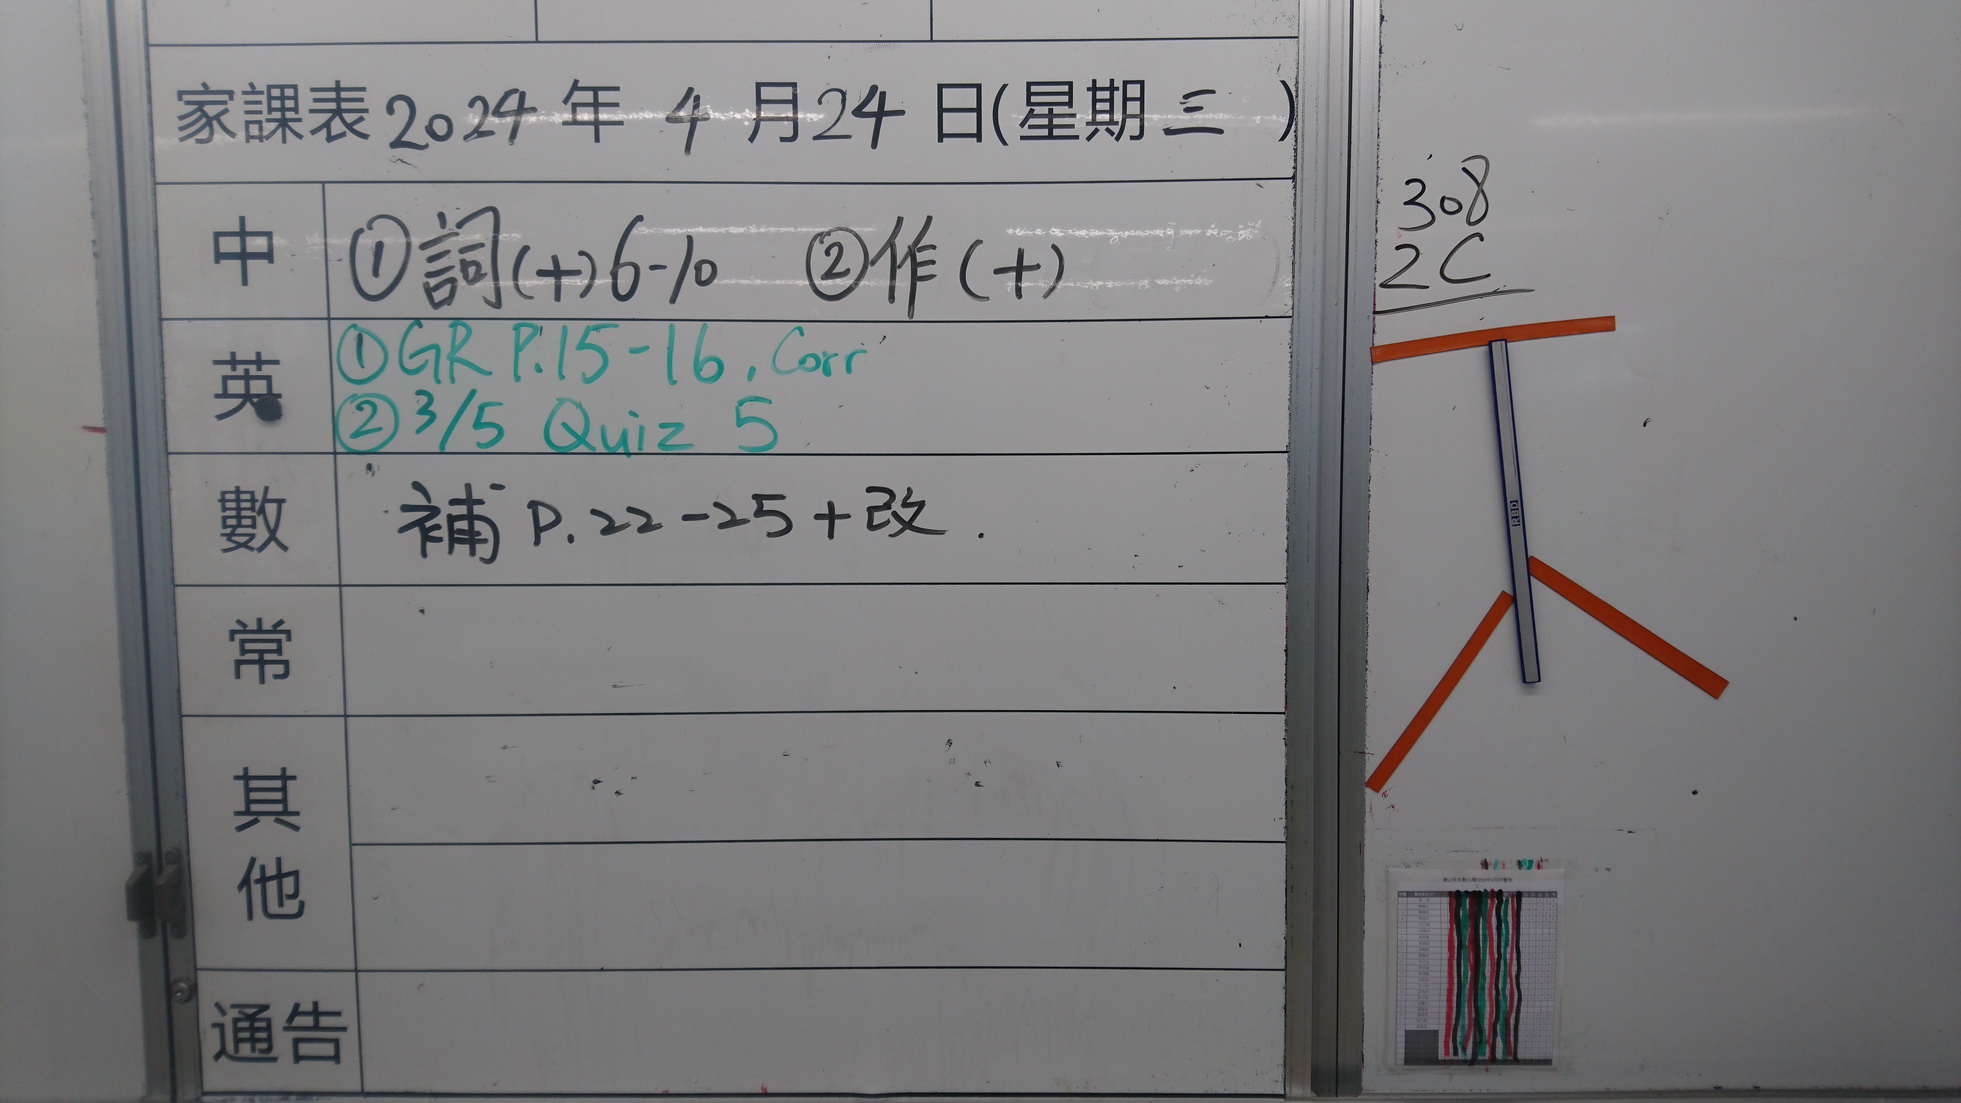 家課表2024年 4月24日(星期三)
中 ①詞(十)6-10 ②作(十)
英 ①GR P.15-16, Corr
②3/5 Quiz 5
數 補 P.22-25+改.
常
其他
通告
308
2C
RBD